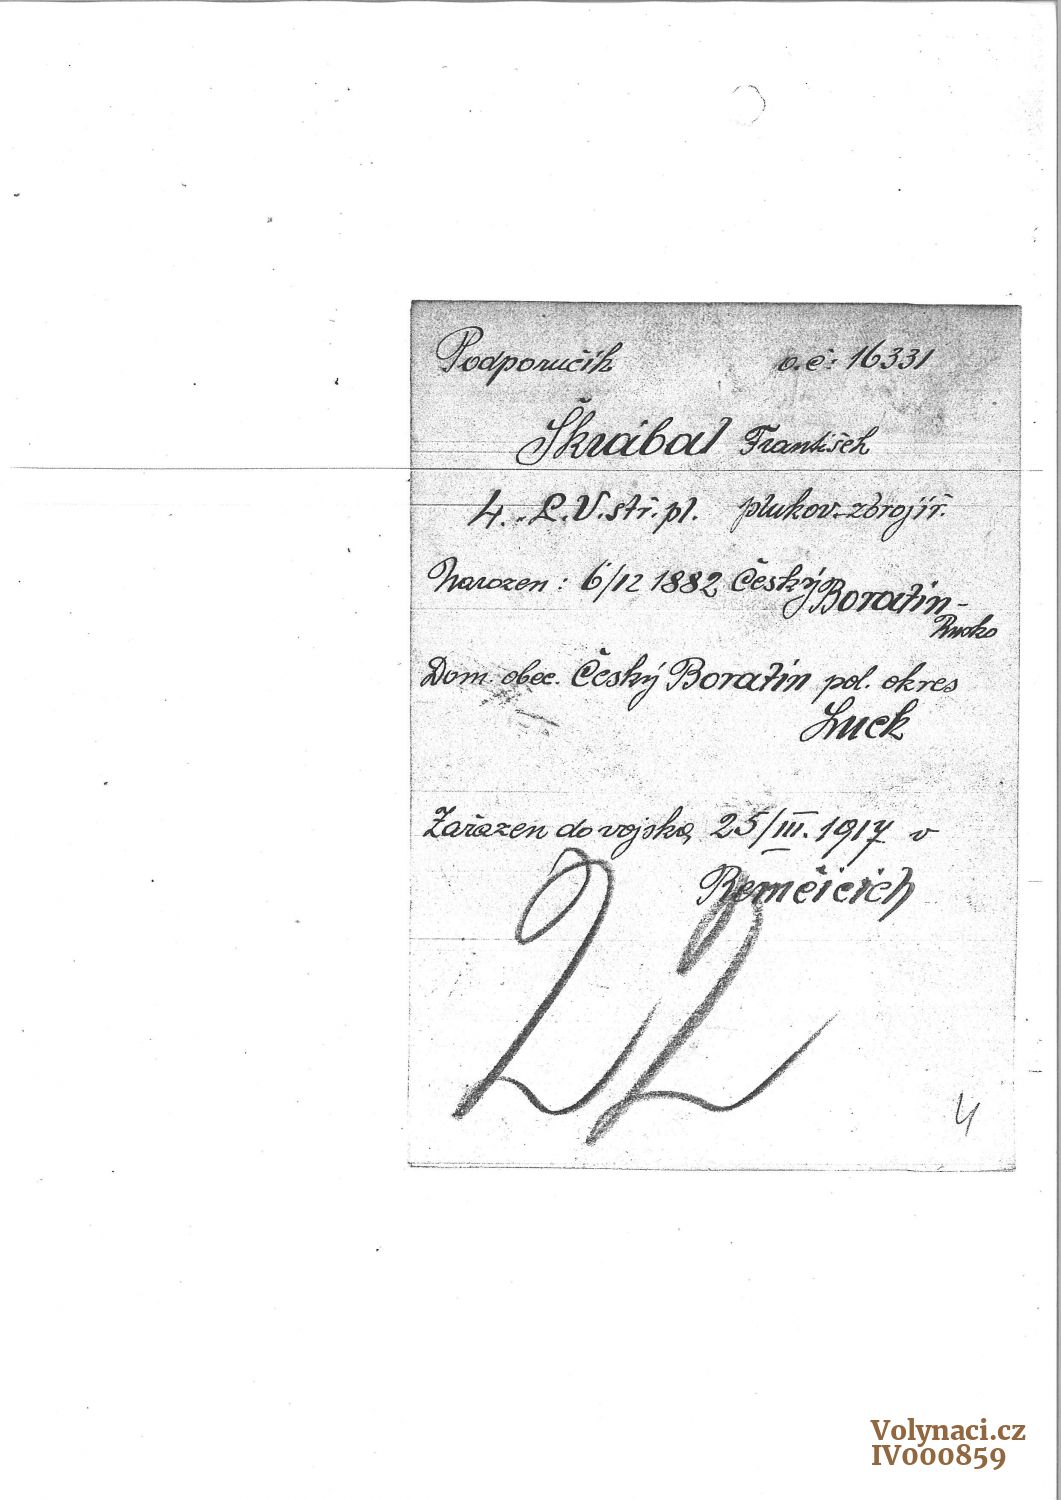 Podporučík o.č: 16331
Škrábal František
4. L.V. stř. pl. plukov. zbrojíř.
Narozen: 6/12 1882 Český Boratín -
Rusko
Dom. obec. Český Boratín pol. okres
Luck
Zařazen do vojska 25/III. 1917 v
Remčicích
22
4
Volynaci.cz
IV000859